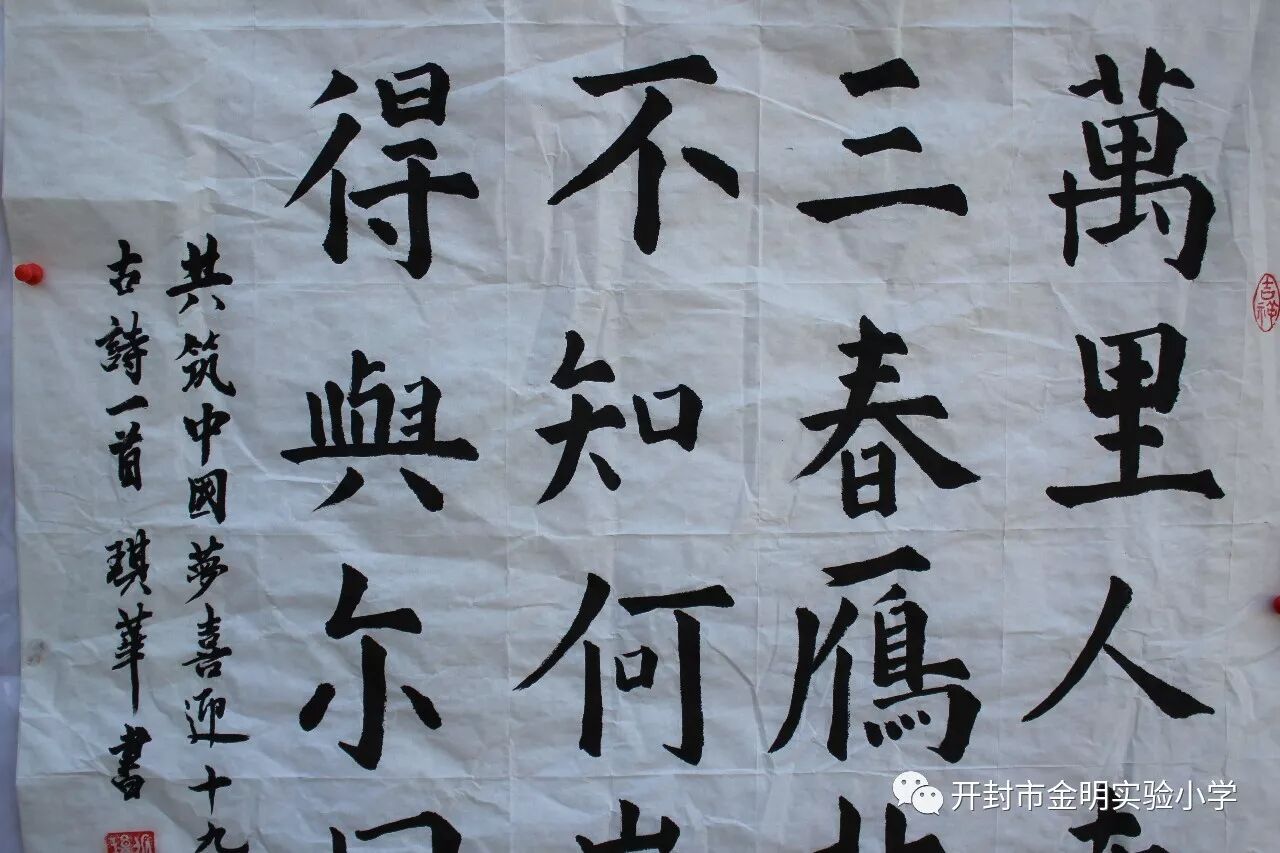 吉祥
萬里人
三春鴈
不知何
得與尔
共筑中國夢喜迎十九
古詩一首 琪華書
开封市金明实验小学